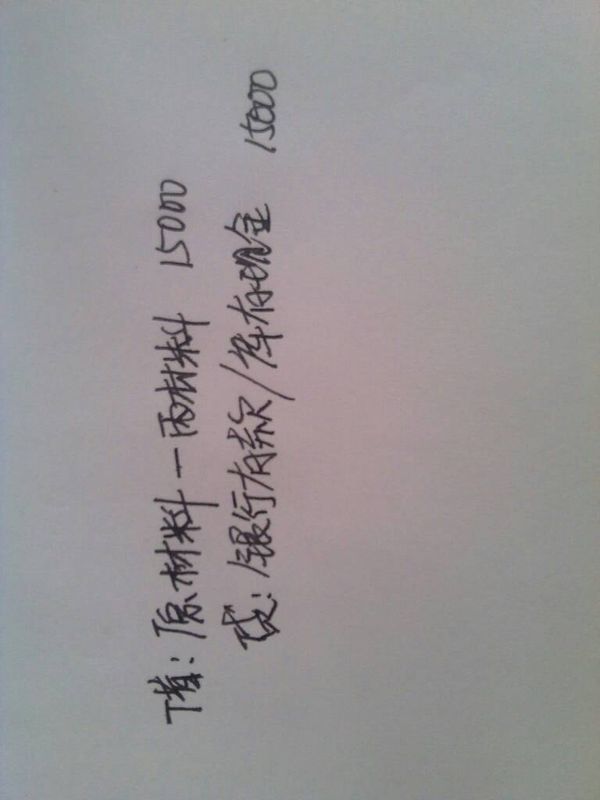 借：原材料一丙材料 15000
贷：银行存款/库存现金 15000